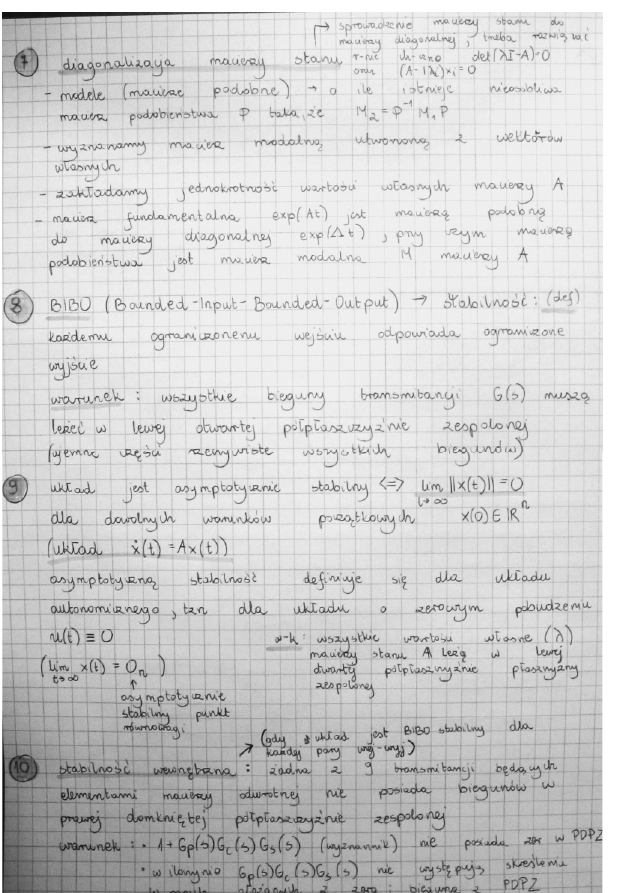 → sprowadzenie macierzy stanu do
macierzy diagonalnej, trzeba rozwiązać
r-nie ch-czno det(λI-A)=0
oraz (A-Iλi)xi=0
7 diagonalizacja macierzy stanu
- modele (macierze podobne) → o ile istnieje nieosobliwa
macierz podobieństwa P taka, że M₂ = P⁻¹ M₁ P
- wyznaczamy macierz modalną utworzoną z wektorów
własnych
- zakładamy jednokrotność wartości własnych macierzy A
- macierz fundamentalna exp(At) jest macierzą podobną
do macierzy diagonalnej exp(Δt), przy czym macierzą
podobieństwa jest macierz modalna M macierzy A
8 BIBO (Bounded-Input-Bounded-Output) → stabilność: (def)
każdemu ograniczonemu wejściu odpowiada ograniczone
wyjście
warunek: wszystkie bieguny transmitancji G(s) muszą
leżeć w lewej otwartej półpłaszczyźnie zespolonej
(ujemne części rzeczywiste wszystkich biegunów)
9 układ jest asymptotycznie stabilny <=> lim ||x(t)|| = 0
t→∞
dla dowolnych warunków początkowych x(0) ∈ ℝⁿ
(układ ẋ(t) = Ax(t))
asymptotyczną stabilność definiuje się dla układu
autonomicznego, tzn dla układu o zerowym pobudzeniu
u(t) ≡ 0
w-k: wszystkie wartości własne (λ)
macierzy stanu A leżą w lewej
otwartej półpłaszczyźnie płaszczyzny
zespolonej
(lim x(t) = 0ₙ)
t→∞
↑
asymptotycznie
stabilny punkt
równowagi
(gdy układ jest BIBO stabilny dla
każdej pary wej-wyj)
10 stabilność wewnętrzna: żadna z 9 transmitancji będących
elementami macierzy odwrotnej nie posiada biegunów w
prawej domkniętej półpłaszczyźnie zespolonej
warunek: • 1+Gp(s)Gc(s)Gs(s) (wyznacznik) nie posiada zer w PDPZ
• w iloczynie Gp(s)Gc(s)Gs(s) nie występują skreślenia
zer i bieguna z PDPZ